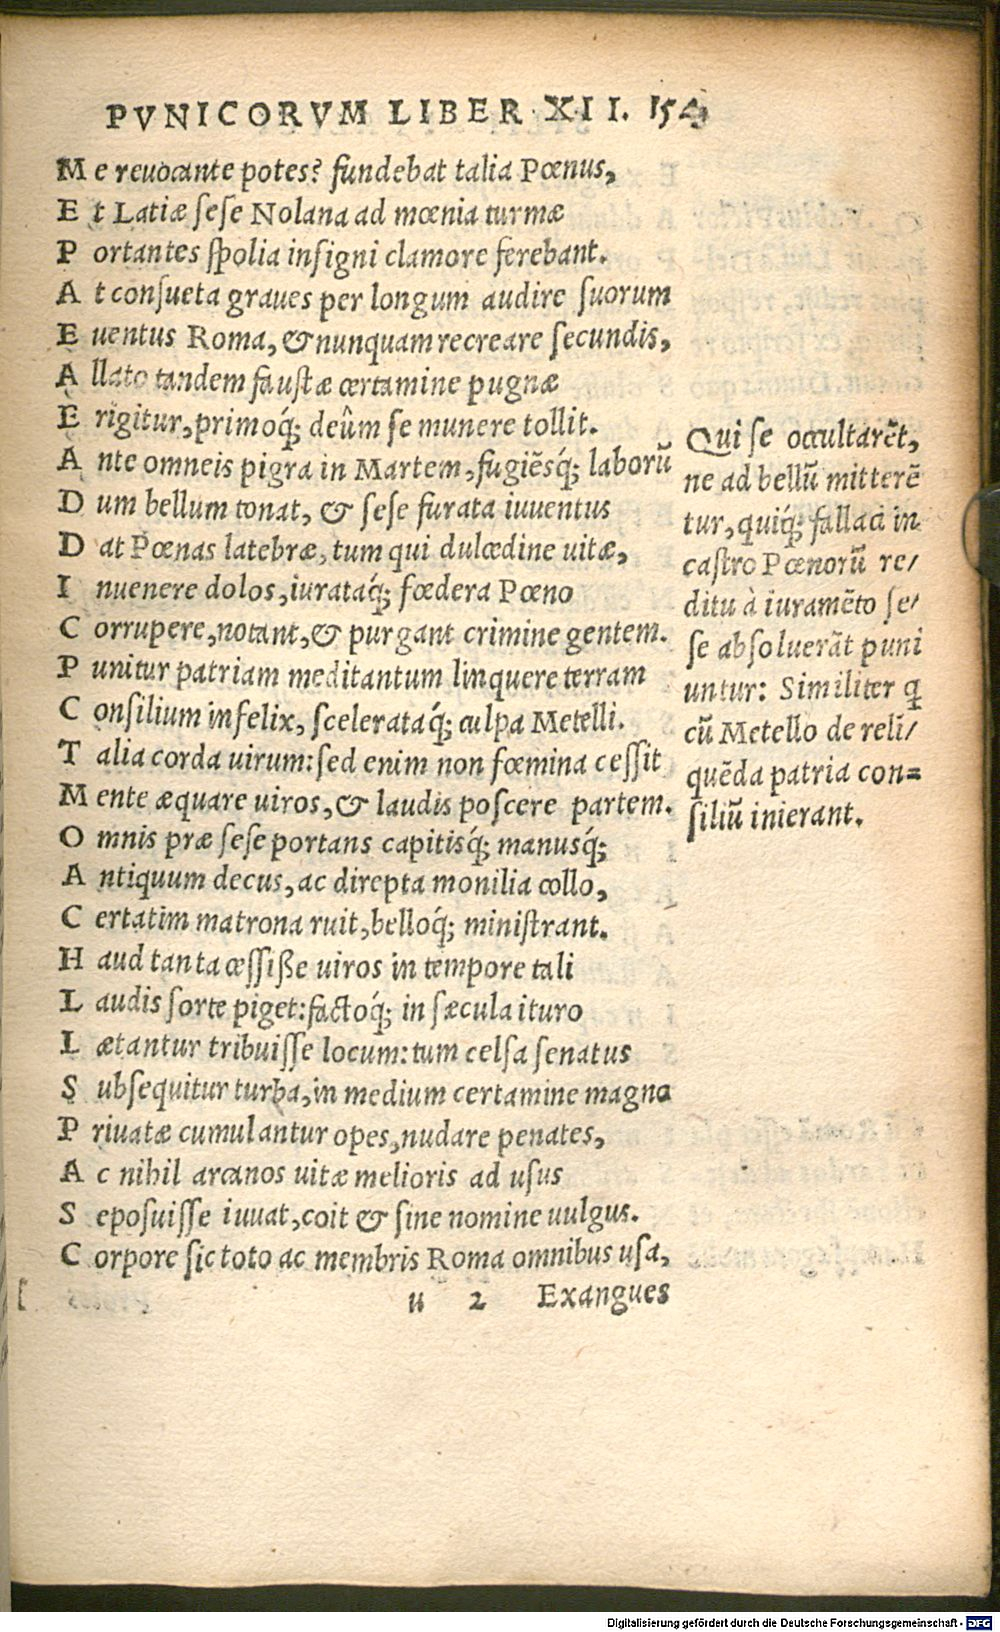 PVNICORVM LIBER XII. 154
Me reuocante potes? fundebat talia Pœnus,
Et Latiæ sese Nolana ad mœnia turmæ
Portantes spolia insigni clamore ferebant.
At consueta graues per longum audire suorum
Euentus Roma, & nunquam recreare secundis,
Allato tandem faustæ certamine pugnæ
Erigitur, primoq́; deûm se munere tollit.
Ante omneis pigra in Martem, fugiẽsq́; laborũ
Dum bellum tonat, & sese furata iuuentus
Dat Pœnas latebræ, tum qui dulcedine uitæ,
Inuenere dolos, iurataq́; fœdera Pœno
Corrupere, notant, & purgant crimine gentem.
Punitur patriam meditantum linquere terram
Consilium infelix, scelerataq́; culpa Metelli.
Talia corda uirum: sed enim non fœmina cessit
Mente æquare uiros, & laudis poscere partem.
Omnis præ sese portans capitisq́; manusq́;
Antiquum decus, ac direpta monilia collo,
Certatim matrona ruit, belloq́; ministrant.
Haud tanta cessiße uiros in tempore tali
Laudis sorte piget: factoq́; in sæcula ituro
Lætantur tribuisse locum: tum celsa senatus
Subsequitur turba, in medium certamine magno
Priuatæ cumulantur opes, nudare penates,
Ac nihil arcanos uitæ melioris ad usus
Seposuisse iuuat, coit & sine nomine uulgus.
Corpore sic toto ac membris Roma omnibus usa,
u 2 Exangues
Qui se occultarẽt,
ne ad bellũ mitterẽ
tur, quiq́; fallaci in
castro Pœnorũ re/
ditu à iuramẽto se/
se absoluerãt puni
untur: Similiter q̃
cũ Metello de relĩ/
quẽda patria con=
siliũ inierant.
Digitalisierung gefördert durch die Deutsche Forschungsgemeinschaft - DFG